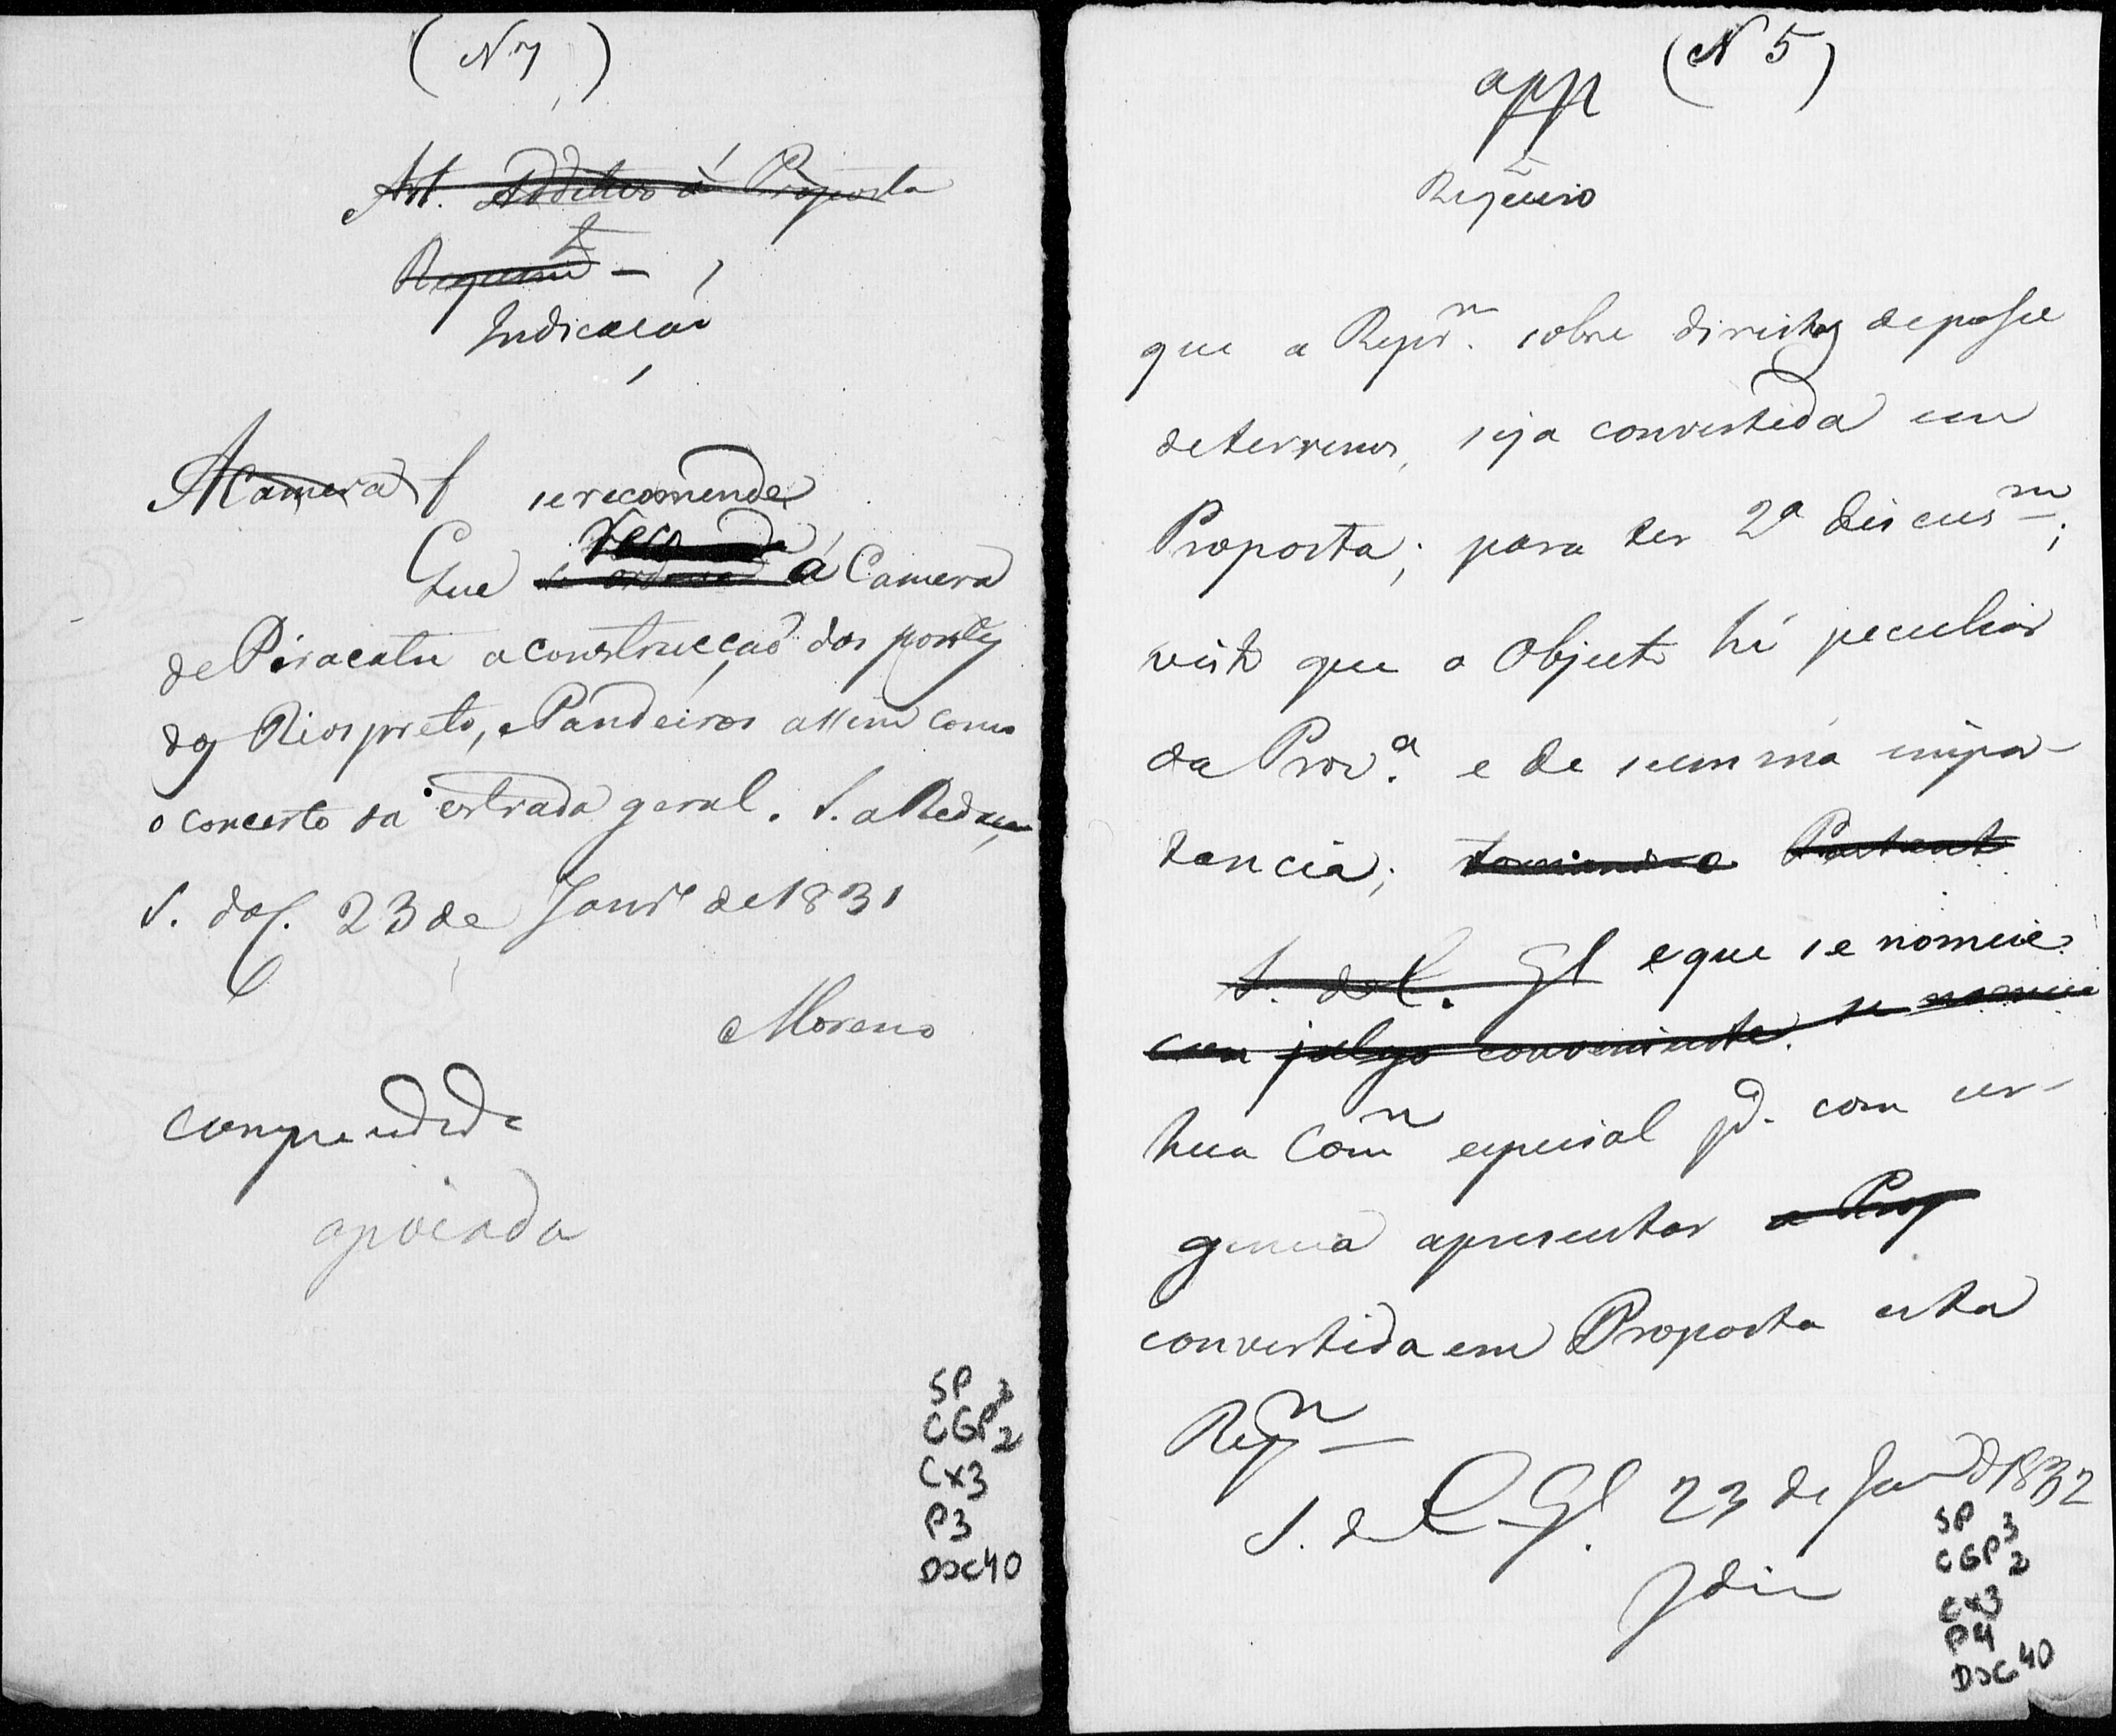 (N 7)
Art. Additivo á Proposta
Requerimto -
Indicacaõ
A Camera
se recomende
Que se ordene á Camera
de Paracatu a construcçaõ dos pontes
dos Rios preto, e Pandeiros assim como
o concerto da estrada geral. S. a Redaçaõ
S. do C. 23 de Janrº de 1831
Moreno
comprendida
apoiada
SP 3
CGP 2
Cx3
P3
Doc 40
(N 5)
app
Requeiro
que a Reprm. sobre direitos de posse
de terrenos, seja convertida em
Proposta; para ter 2ª discusm;
visto que o Objecto hé peculiar
da Prova. e de summa impor-
tancia; Portant
S. do C. Gl e que se nomeie
julgo conveniente. se nomeie
hua Comm especial pª. com ur-
gencia apresentar a Prop
convertida em Proposta esta
Repm
S. do C. Gl. 23 de Janrº d 1832
SP 3
CGP 2
Cx3
P4
Doc 40